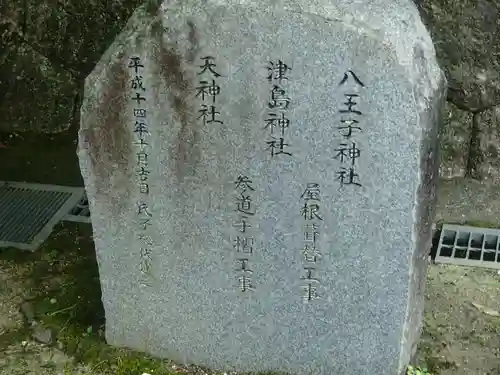 八王子神社
屋根葺替工事
津島神社
天神社
参道手摺工事
平成十四年十月吉日 氏子総代